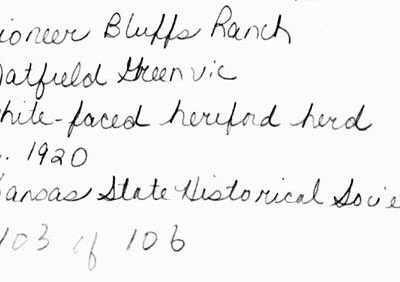 ioneer Bluffs Ranch
atfield Green vic
hite-faced hereford herd
. 1920
ansas State Historical Socie
103 of 106